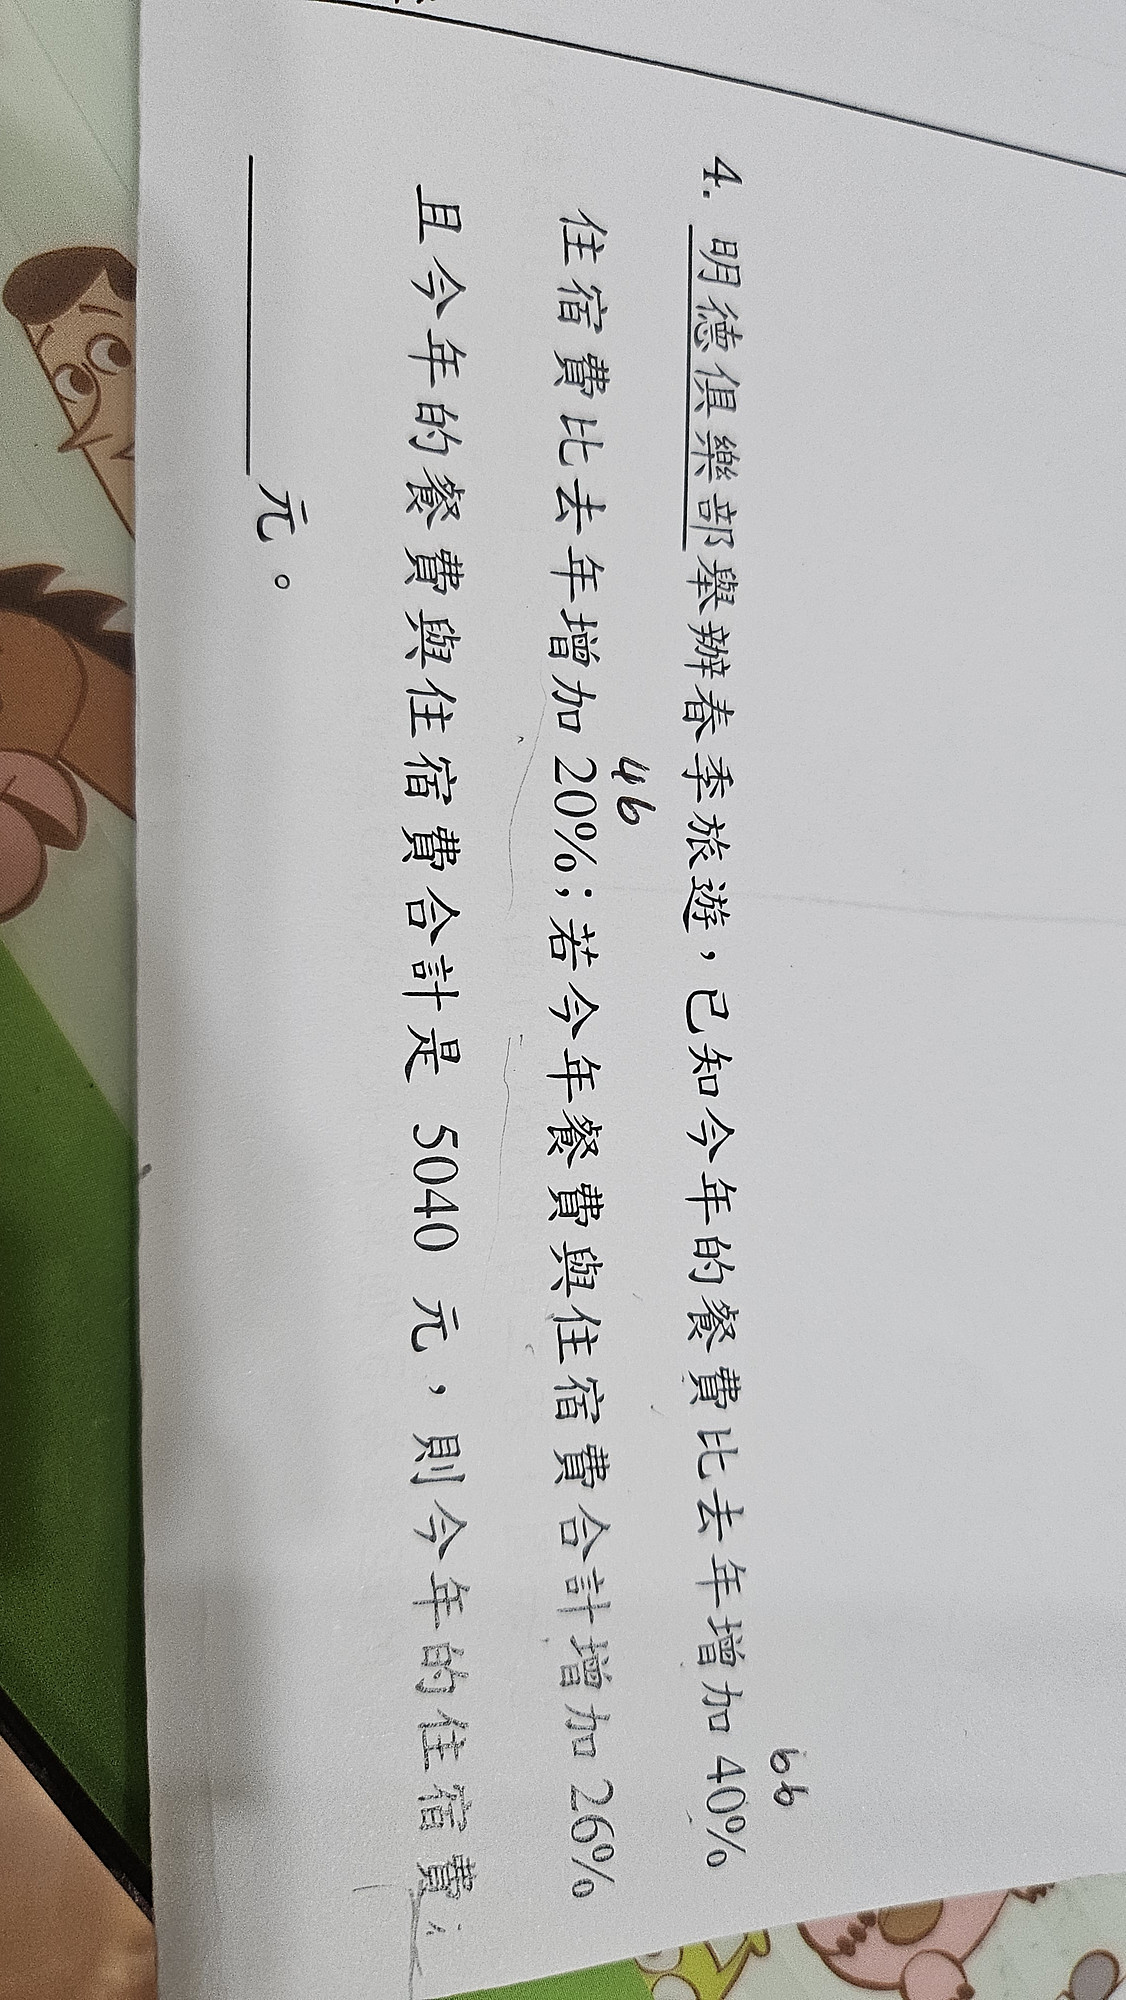 66
4. 明德俱樂部舉辦春季旅遊，已知今年的餐費比去年增加 40%
46
住宿費比去年增加 20%；若今年餐費與住宿費合計增加 26%
且今年的餐費與住宿費合計是 5040 元，則今年的住宿費
元。